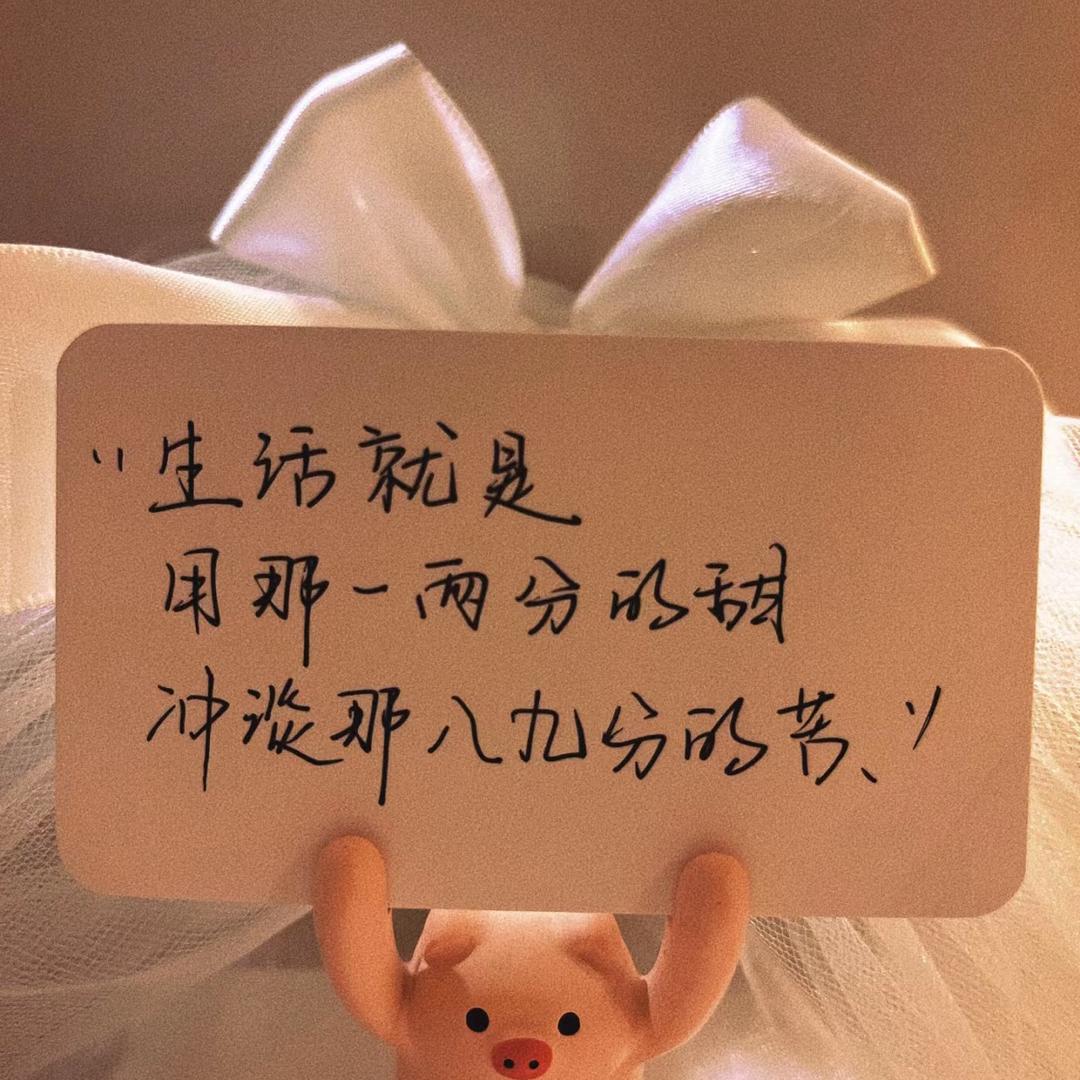 “生活就是
用那一两分的甜
冲淡那八九分的苦、”